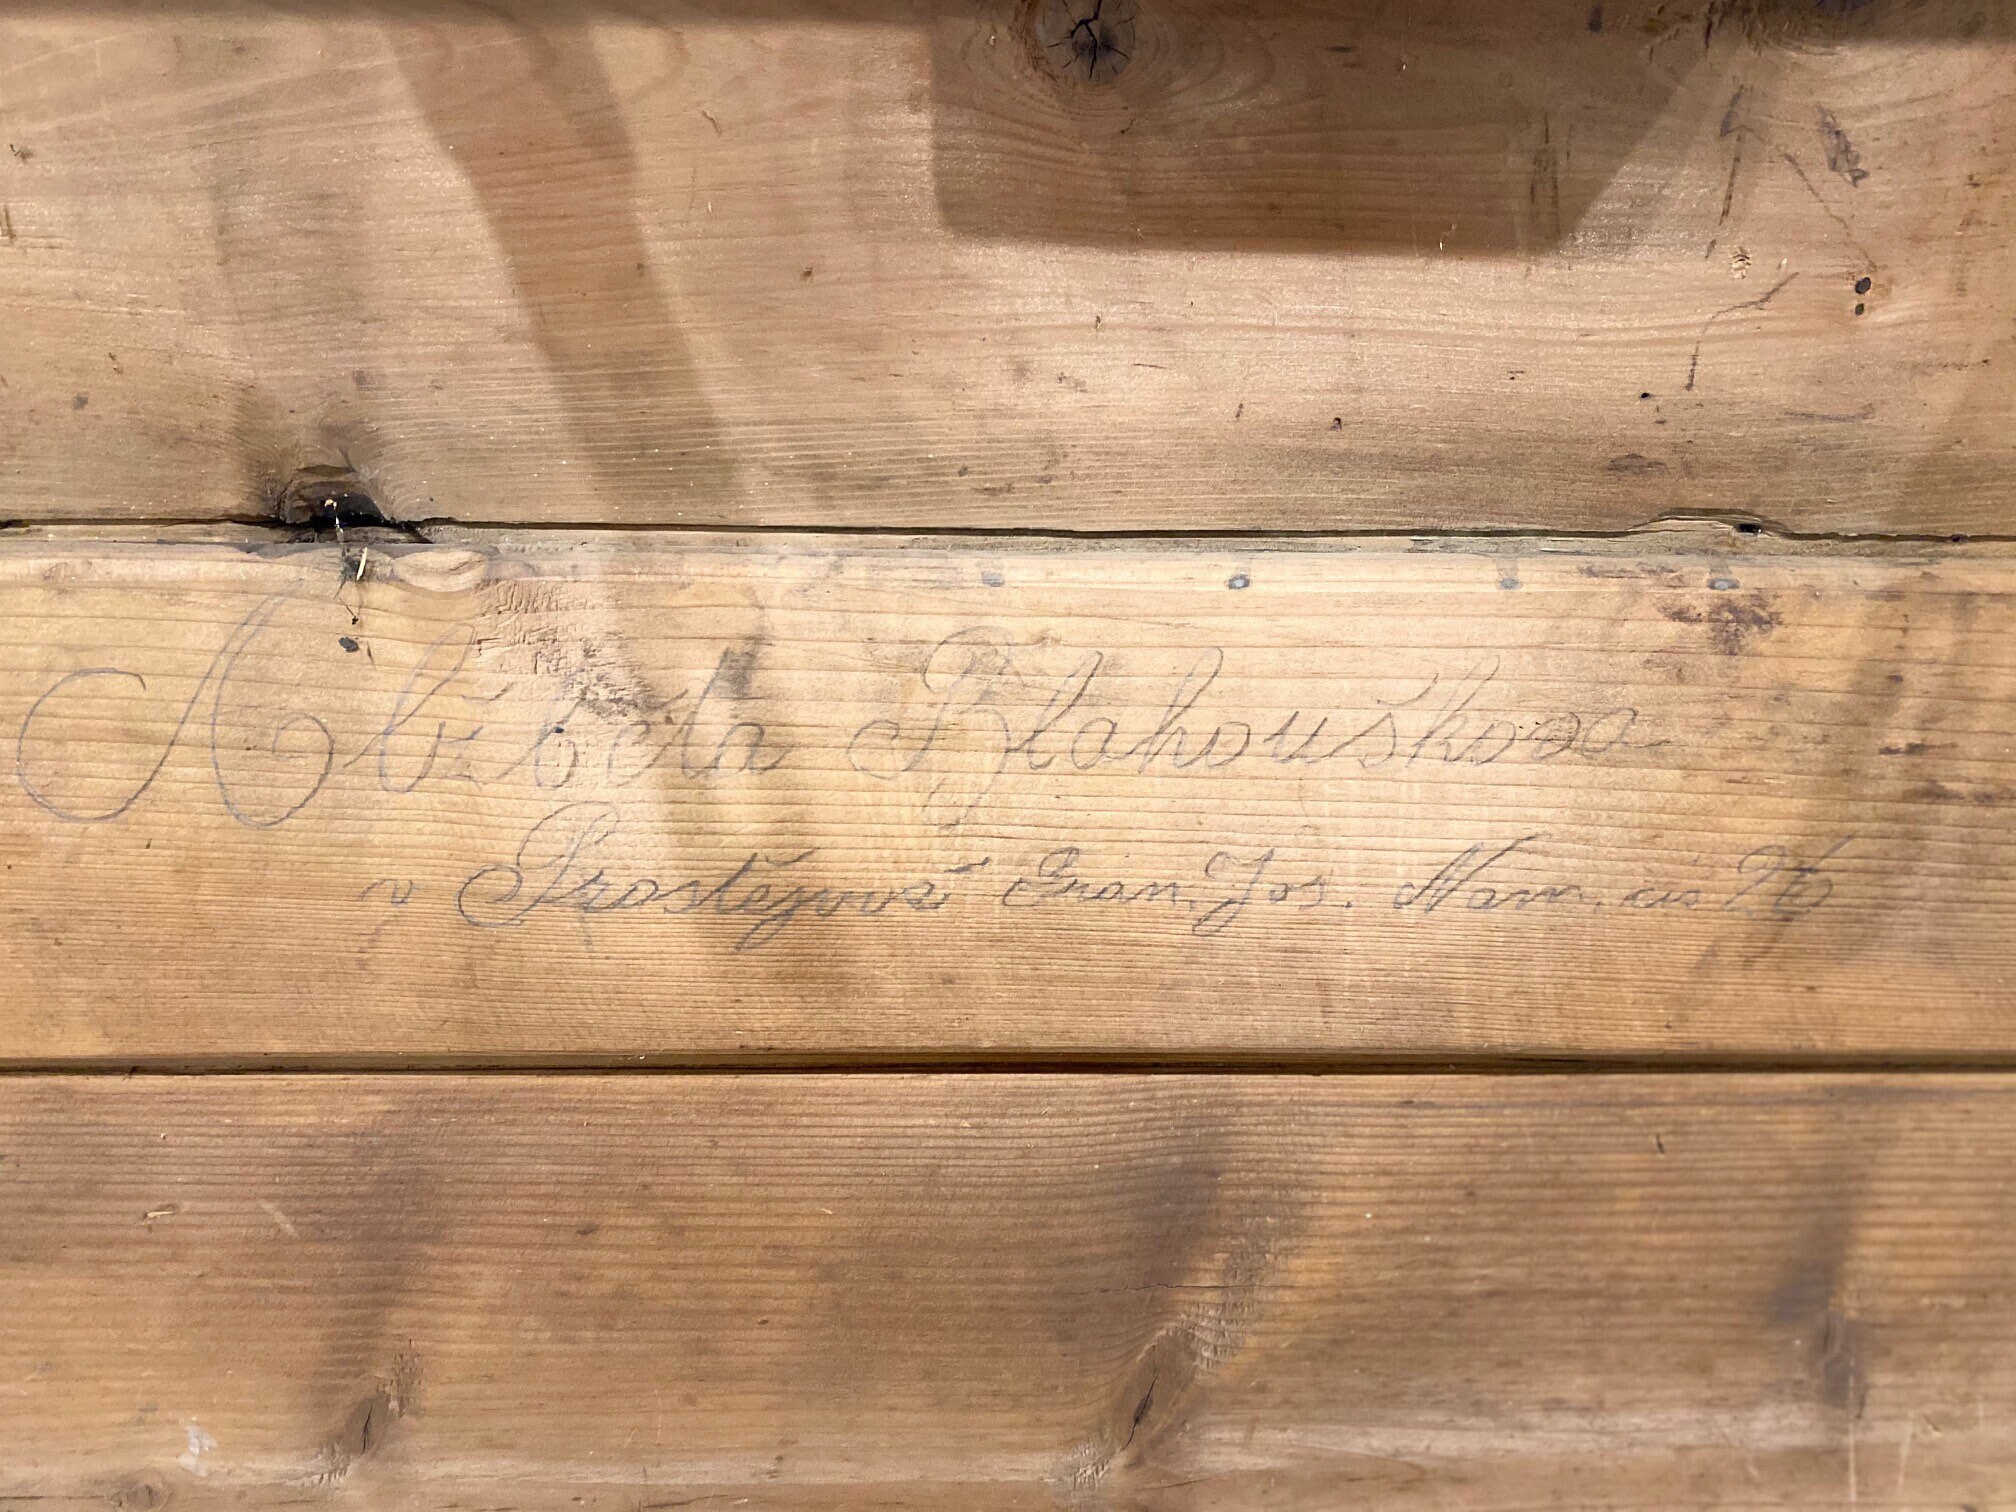 Alžběta Blahoušková
v Prostějově Fran. Jos. Nám. čís 26